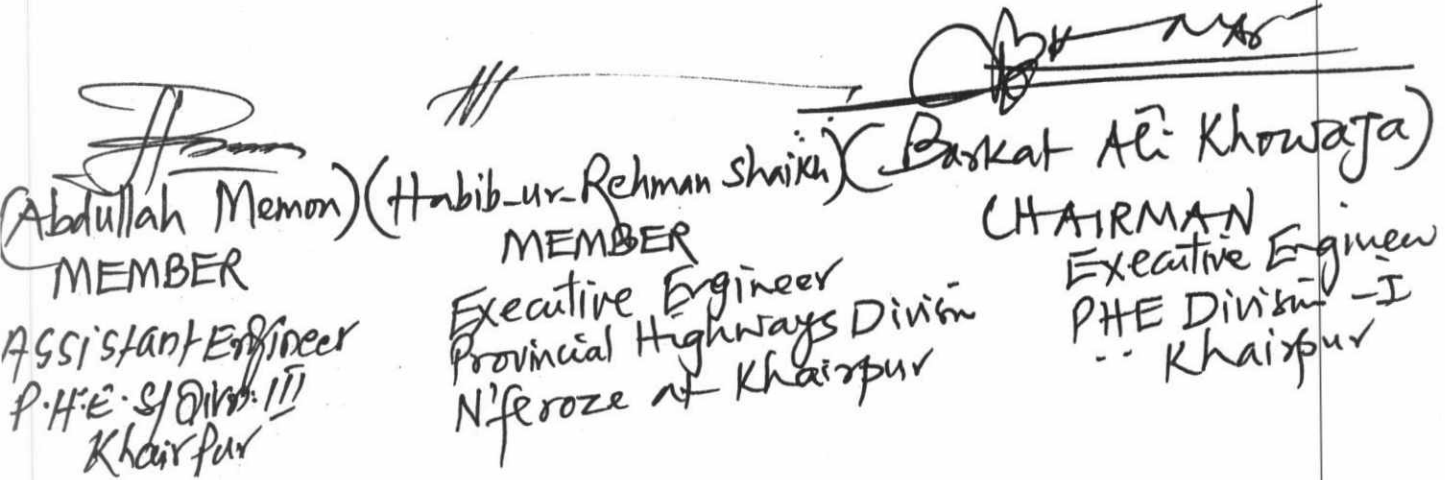 (Abdullah Memon)
MEMBER
Assistant Engineer
P.H.E. S/Divn: III
Khairpur
(Habib-ur-Rehman Shaikh)
MEMBER
Executive Engineer
Provincial Highways Division
N'feroze at Khairpur
(Barkat Ali Khowaja)
CHAIRMAN
Executive Engineer
PHE Division - I
Khairpur